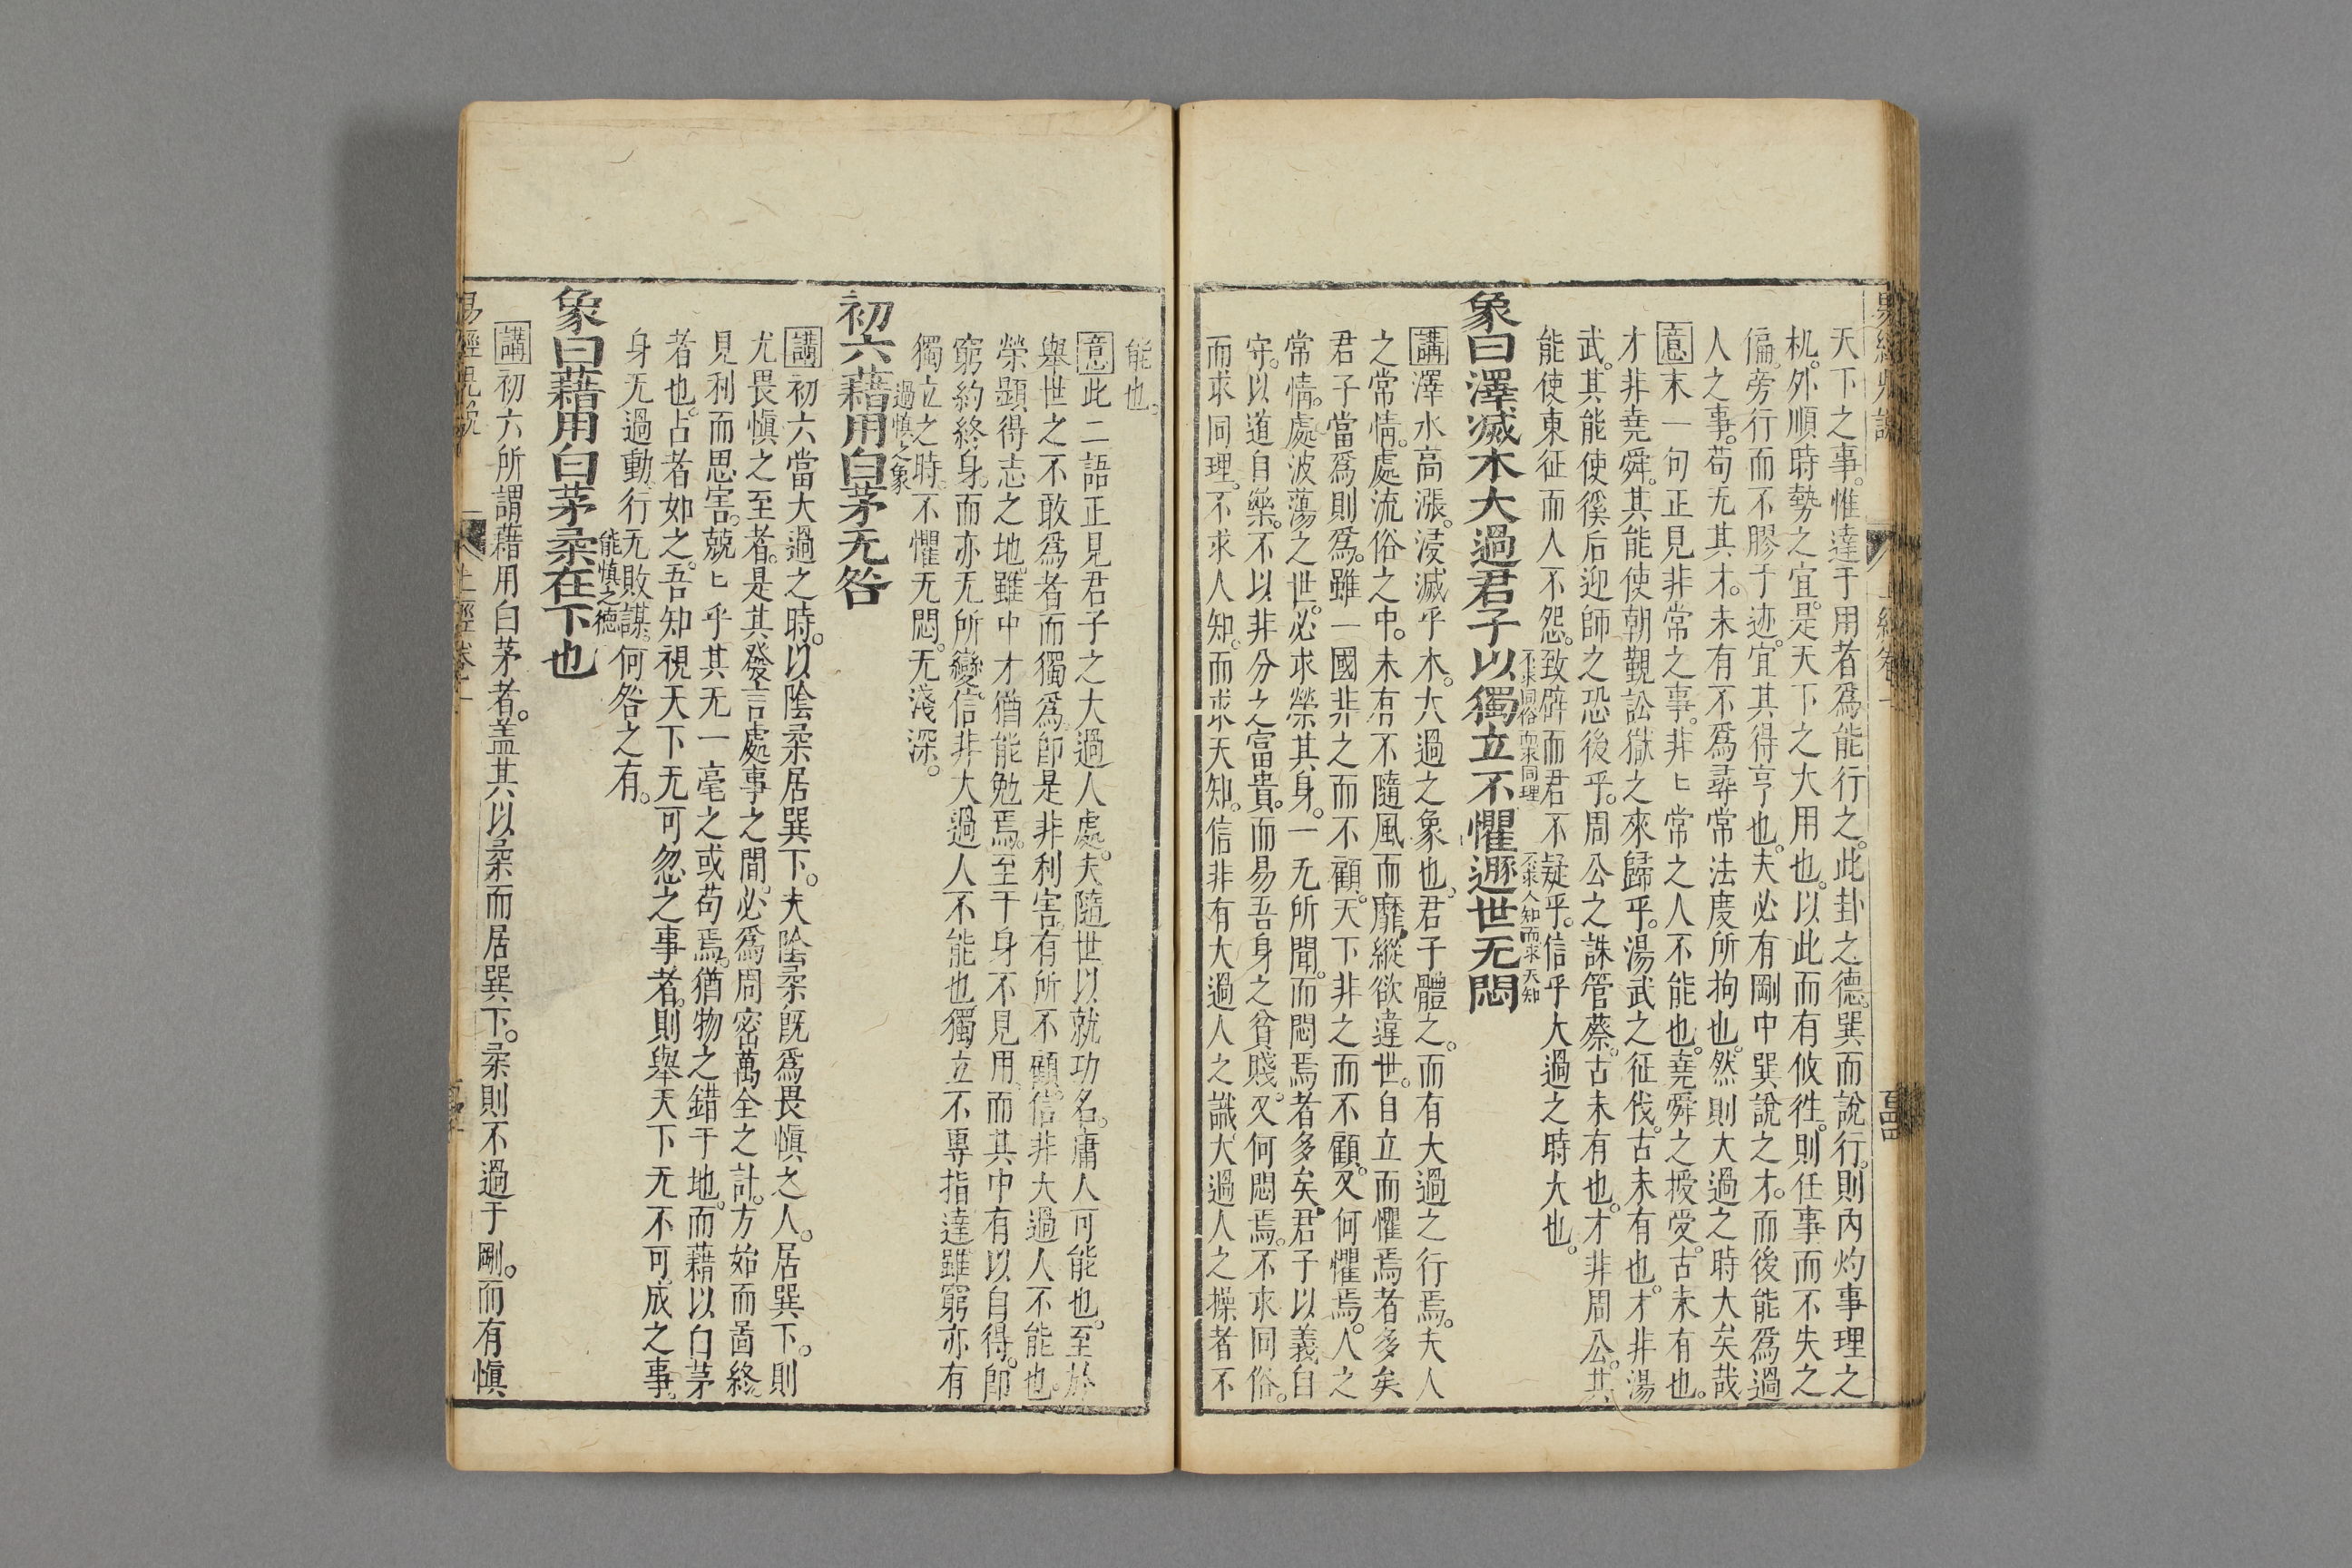 天下之事。惟達于用者爲能行之。此卦之德。巽而說行。則內灼事理之
机。外順時勢之宜。是天下之大用也。以此而有攸徃。則任事而不失之
偏。旁行而不膠于迹。宜其得亨也。夫必有剛中巽說之才。而後能爲過
人之事。苟无其才。未有不爲尋常法度所拘也。然則大過之時大矣哉
意末一句正見非常之事。非匕常之人不能也。堯舜之授受。古未有也。
才非堯舜。其能使朝觀訟獄之來歸乎。湯武之征伐。古未有也。才非湯
武。其能使徯后迎師之恐後乎。周公之誅管蔡。古未有也。才非周公。其
能使東征而人不怨。致辟而君不疑乎。信乎大過之時大也。
不求同俗而求同理
不求人知而求天知
象曰澤滅木大過君子以獨立不懼遯世无悶
講澤水高漲。浸滅乎木。大過之象也。君子體之。而有大過之行焉。夫人
之常情。處流俗之中。未有不隨風而靡。縱欲違世。自立而懼焉者多矣
君子當爲則爲。雖一國非之而不顧。天下非之而不顧。又何懼焉。人之
常情。處波蕩之世。必求榮其身。一无所聞。而悶焉者多矣。君子以義自
守。以道自樂。不以非分之富貴。而易吾身之貧賤。又何悶焉。不求同俗。
而求同理。不求人知。而求天知。信非有大過人之識大過人之操者不
能也。
意此二語正見君子之大過人處。夫隨世以就功名。庸人可能也。至於
舉世之不敢爲者而獨爲。卽是非利害。有所不顧。信非大過人不能也。
榮顯得志之地。雖中才猶能勉焉。至于身不見用。而其中有以自得。卽
窮約終身。而亦无所變。信非大過人不能也獨立不專指達雖窮亦有
獨立之時。不懼无悶。无淺深。
過慎之象
初六藉用白茅无咎
講初六當大過之時。以陰柔居巽下。夫陰柔旣爲畏愼之人。居巽下。則
尤畏愼之至者。是其發言處事之間。必爲周密萬全之計。方始而啚終。
見利而思害。兢匕乎其无一毫之或苟焉。猶物之錯于地。而藉以白茅
者也。占者如之。吾知視天下无可忽之事者。則舉天下无不可成之事。
身无過動。行无敗謀。何咎之有。
能慎之德
象曰藉用白茅柔在下也
講初六所謂藉用白茅者。盖其以柔而居巽下。柔則不過于剛。而有愼